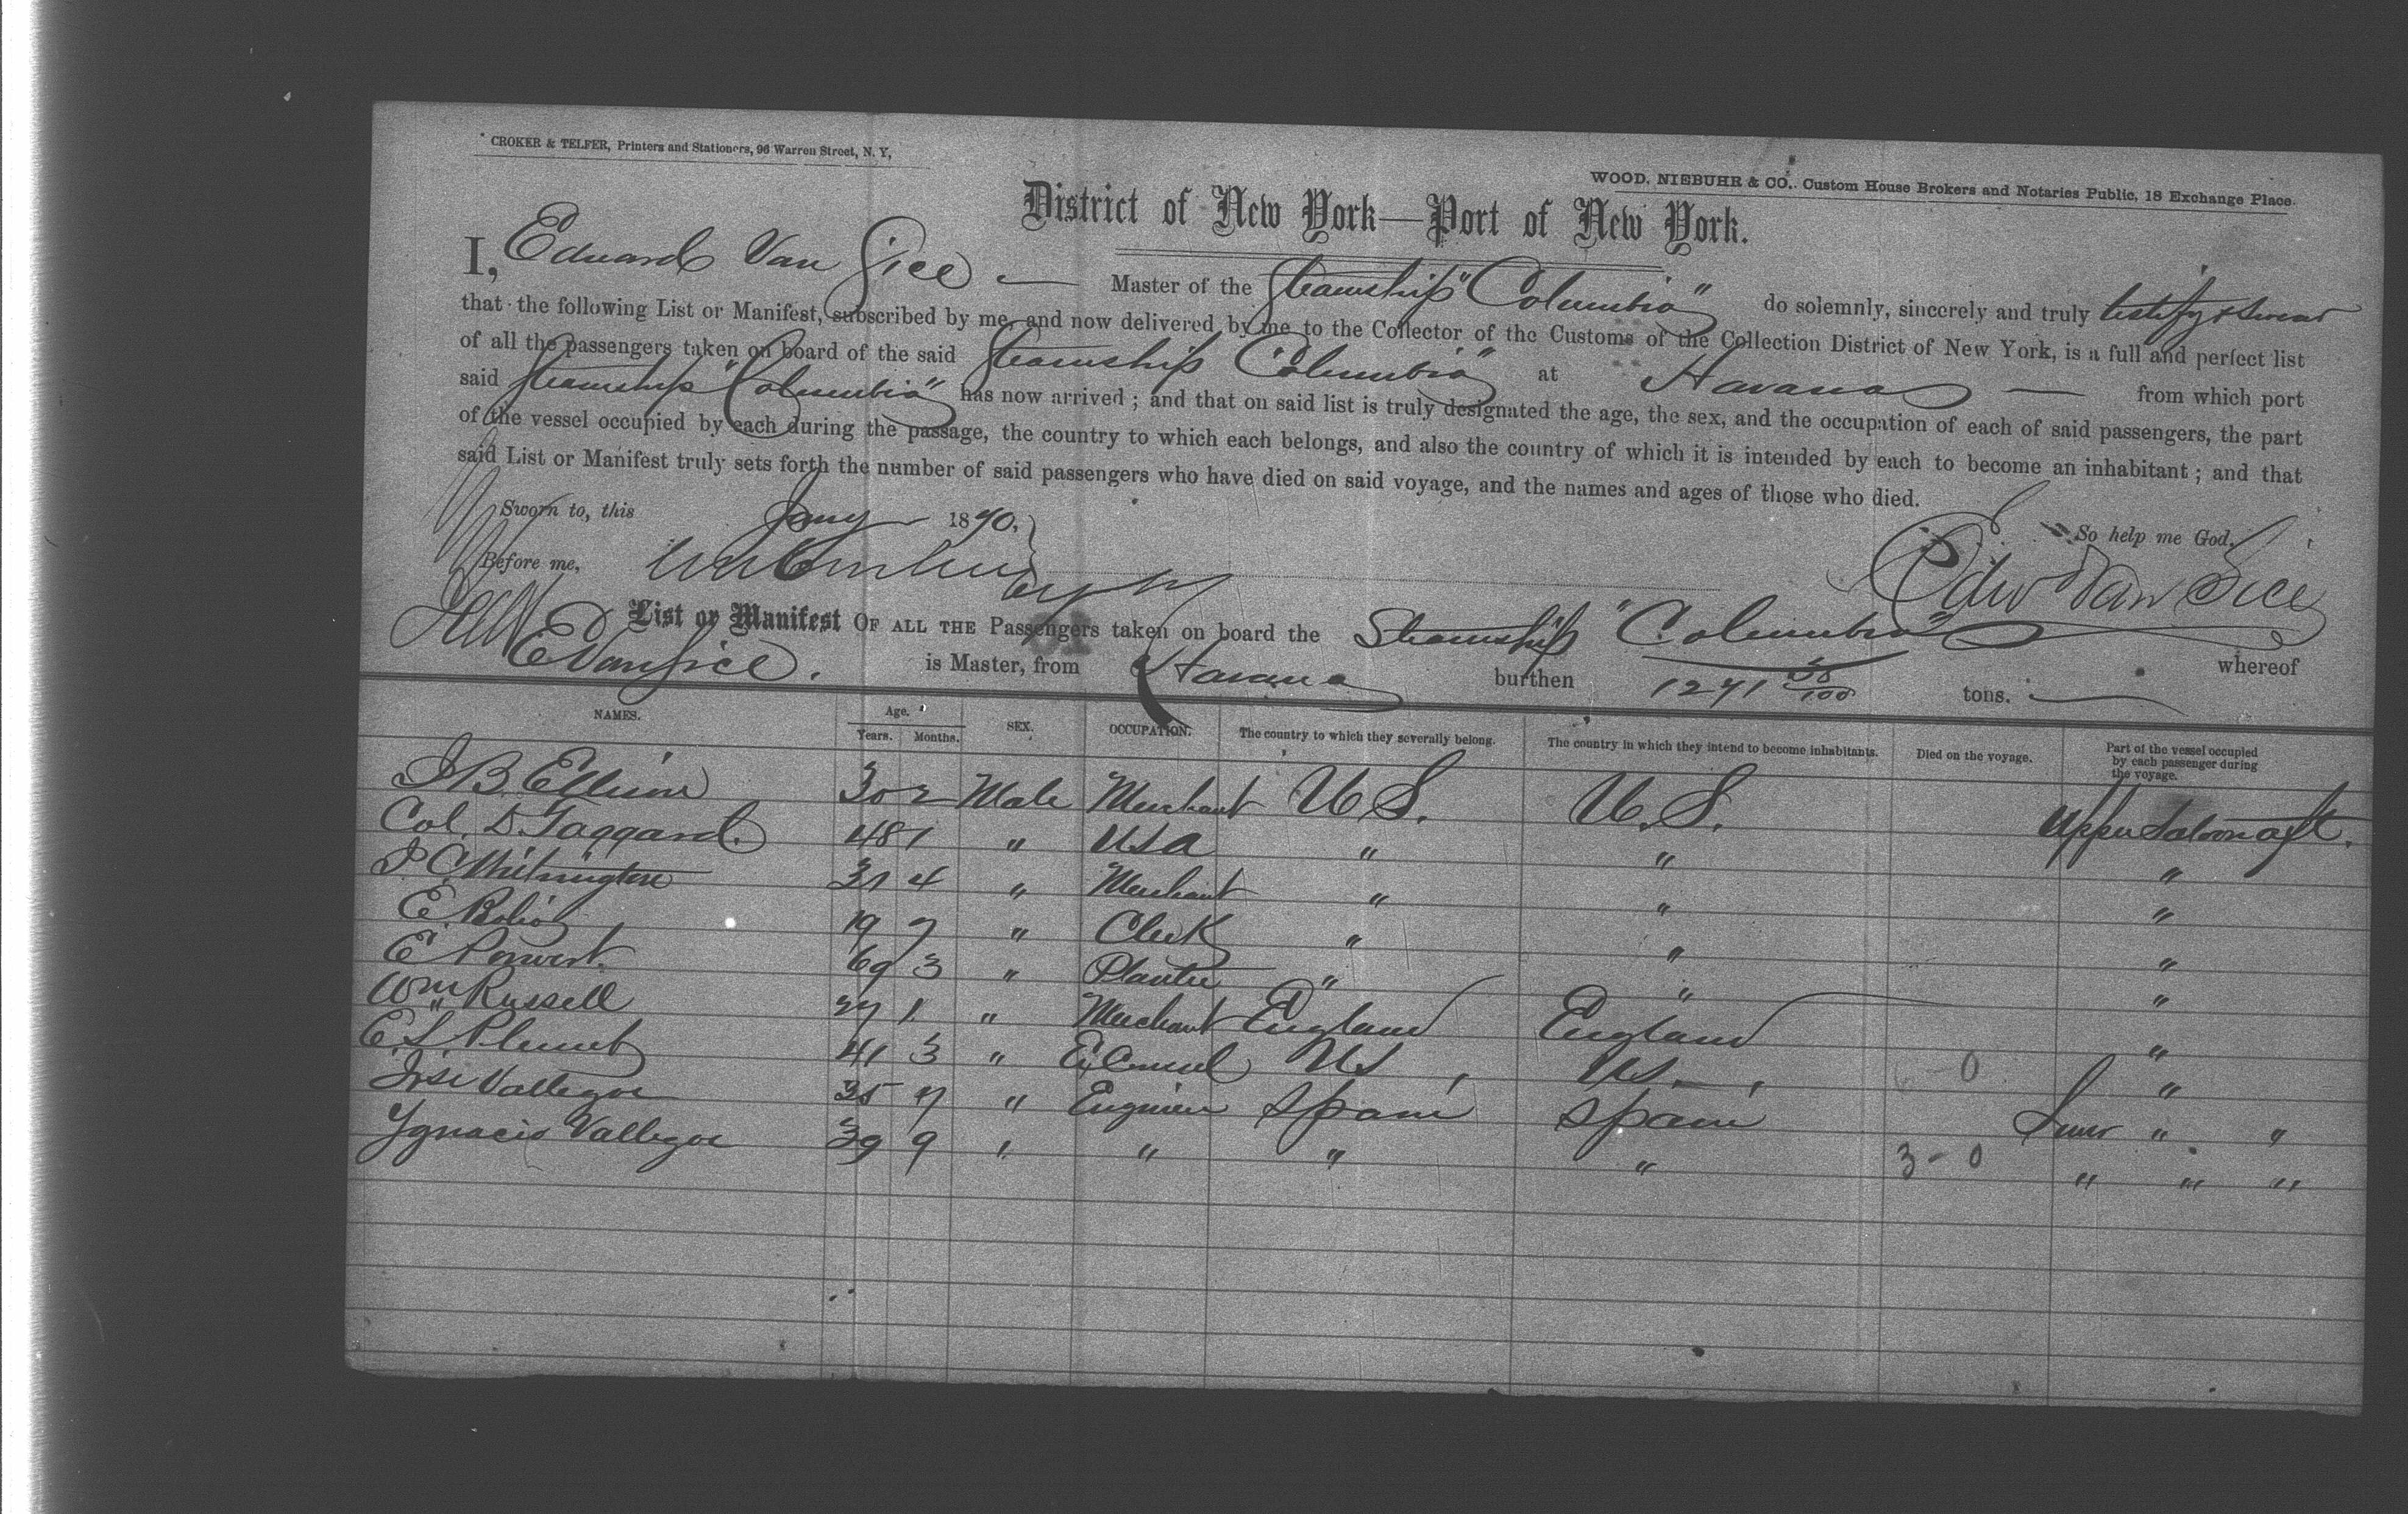 CROKER & TELFER, Printers and Stationers, 96 Warren Street, N. Y,
WOOD, NIEBUHR & CO., Custom House Brokers and Notaries Public, 18 Exchange Place.
District of New York—Port of New York.
I, Edward Van Sice — Master of the Steamship "Columbia" do solemnly, sincerely and truly testify & swear
that the following List or Manifest, subscribed by me, and now delivered by me to the Collector of the Customs of the Collection District of New York, is a full and perfect list
of all the passengers taken on board of the said Steamship "Columbia" at Havana — from which port
said Steamship "Columbia" has now arrived; and that on said list is truly designated the age, the sex, and the occupation of each of said passengers, the part
of the vessel occupied by each during the passage, the country to which each belongs, and also the country of which it is intended by each to become an inhabitant; and that
said List or Manifest truly sets forth the number of said passengers who have died on said voyage, and the names and ages of those who died.
Sworn to, this Jany 1870. So help me God.
Before me, Edw Van Sice
List or Manifest OF ALL THE Passengers taken on board the Steamship "Columbia" whereof
E Van Sice. is Master, from Havana burthen tons.
NAMES. Age. Years. Months. SEX. OCCUPATION. The country to which they severally belong. The country in which they intend to become inhabitants. Died on the voyage. Part of the vessel occupied by each passenger during the voyage.
J B. Ellison 30 2 Male Merchant U S. U. S. Upper Saloon aft.
Col. D. Taggard. 48 1 " USA " " "
31 4 " Merchant " " "
E. 19 7 " Clerk " " "
E 69 3 " Planter " " "
Wm Russell 27 1 " Merchant England England "
E. S. Plumb 41 3 " Ex Consul US US 0 "
José Vallegos 35 7 " Engineer Spain Spain Lower " "
Ygnacio Vallegos 39 9 " " " " 3 - 0 " " "